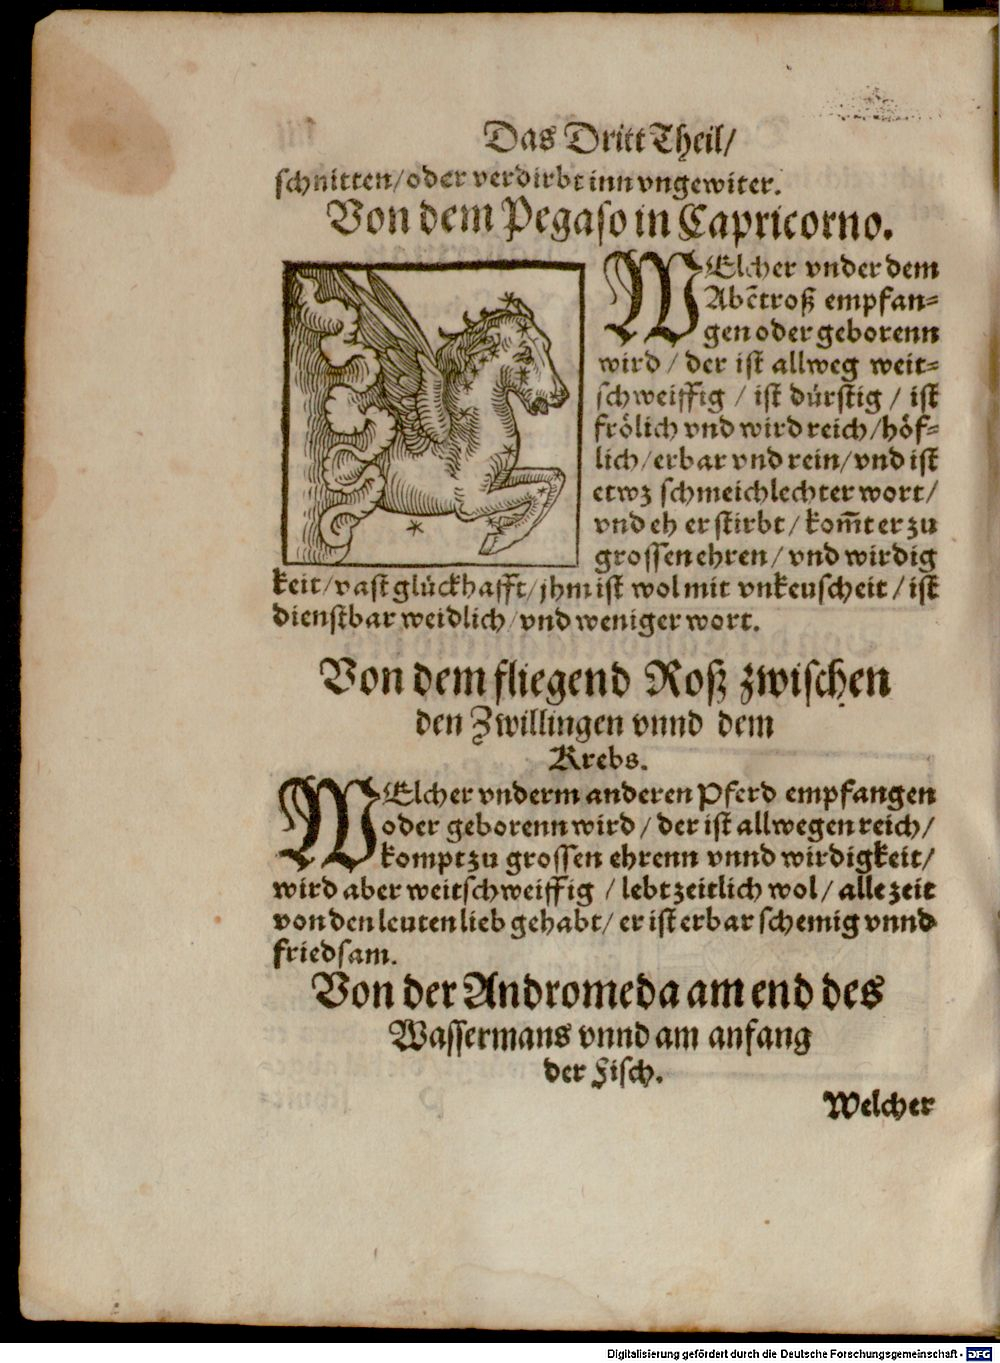 Das Dritt Theil/
schnitten/oder verdirbt inn vngewiter.
Von dem Pegaso in Capricorno.
WElcher vnder dem
Abẽtroß empfan-
gen oder geborenn
wird / der ist allweg weit-
schweiffig / ist dürstig / ist
frölich vnd wird reich/höf-
lich/erbar vnd rein/vnd ist
etwz schmeichlechter wort/
vnd eh er stirbt/kom̃t er zu
grossen ehren/vnd wirdig
keit/vast glückhafft/jhm ist wol mit vnkeuscheit/ist
dienstbar weidlich/vnd weniger wort.
Von dem fliegend Roß zwischen
den Zwillingen vnnd dem
Krebs.
WElcher vnderm anderen Pferd empfangen
oder geborenn wird/der ist allwegen reich/
kompt zu grossen ehrenn vnnd wirdigkeit/
wird aber weitschweiffig/lebt zeitlich wol/alle zeit
von den leuten lieb gehabt/er ist erbar schemig vnnd
friedsam.
Von der Andromeda am end des
Wassermans vnnd am anfang
der Fisch.
Welcher
Digitalisierung gefördert durch die Deutsche Forschungsgemeinschaft - DFG